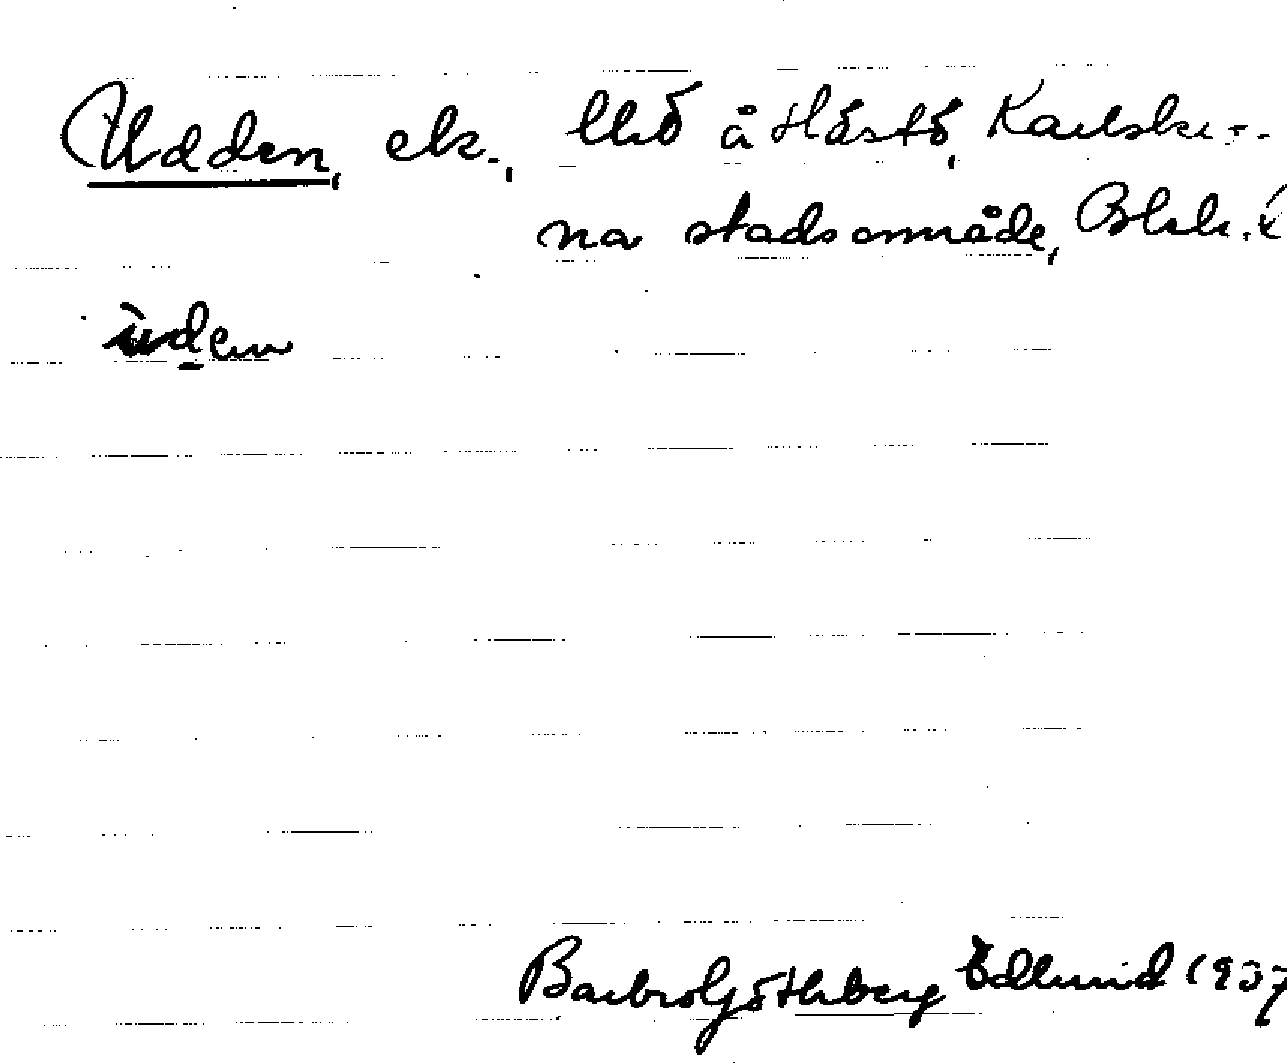 Udden, ek., Uö å Hästö, Karlskro-
na stadsområde, Blek.
uden
Barbro Götherberg Edlund 1937